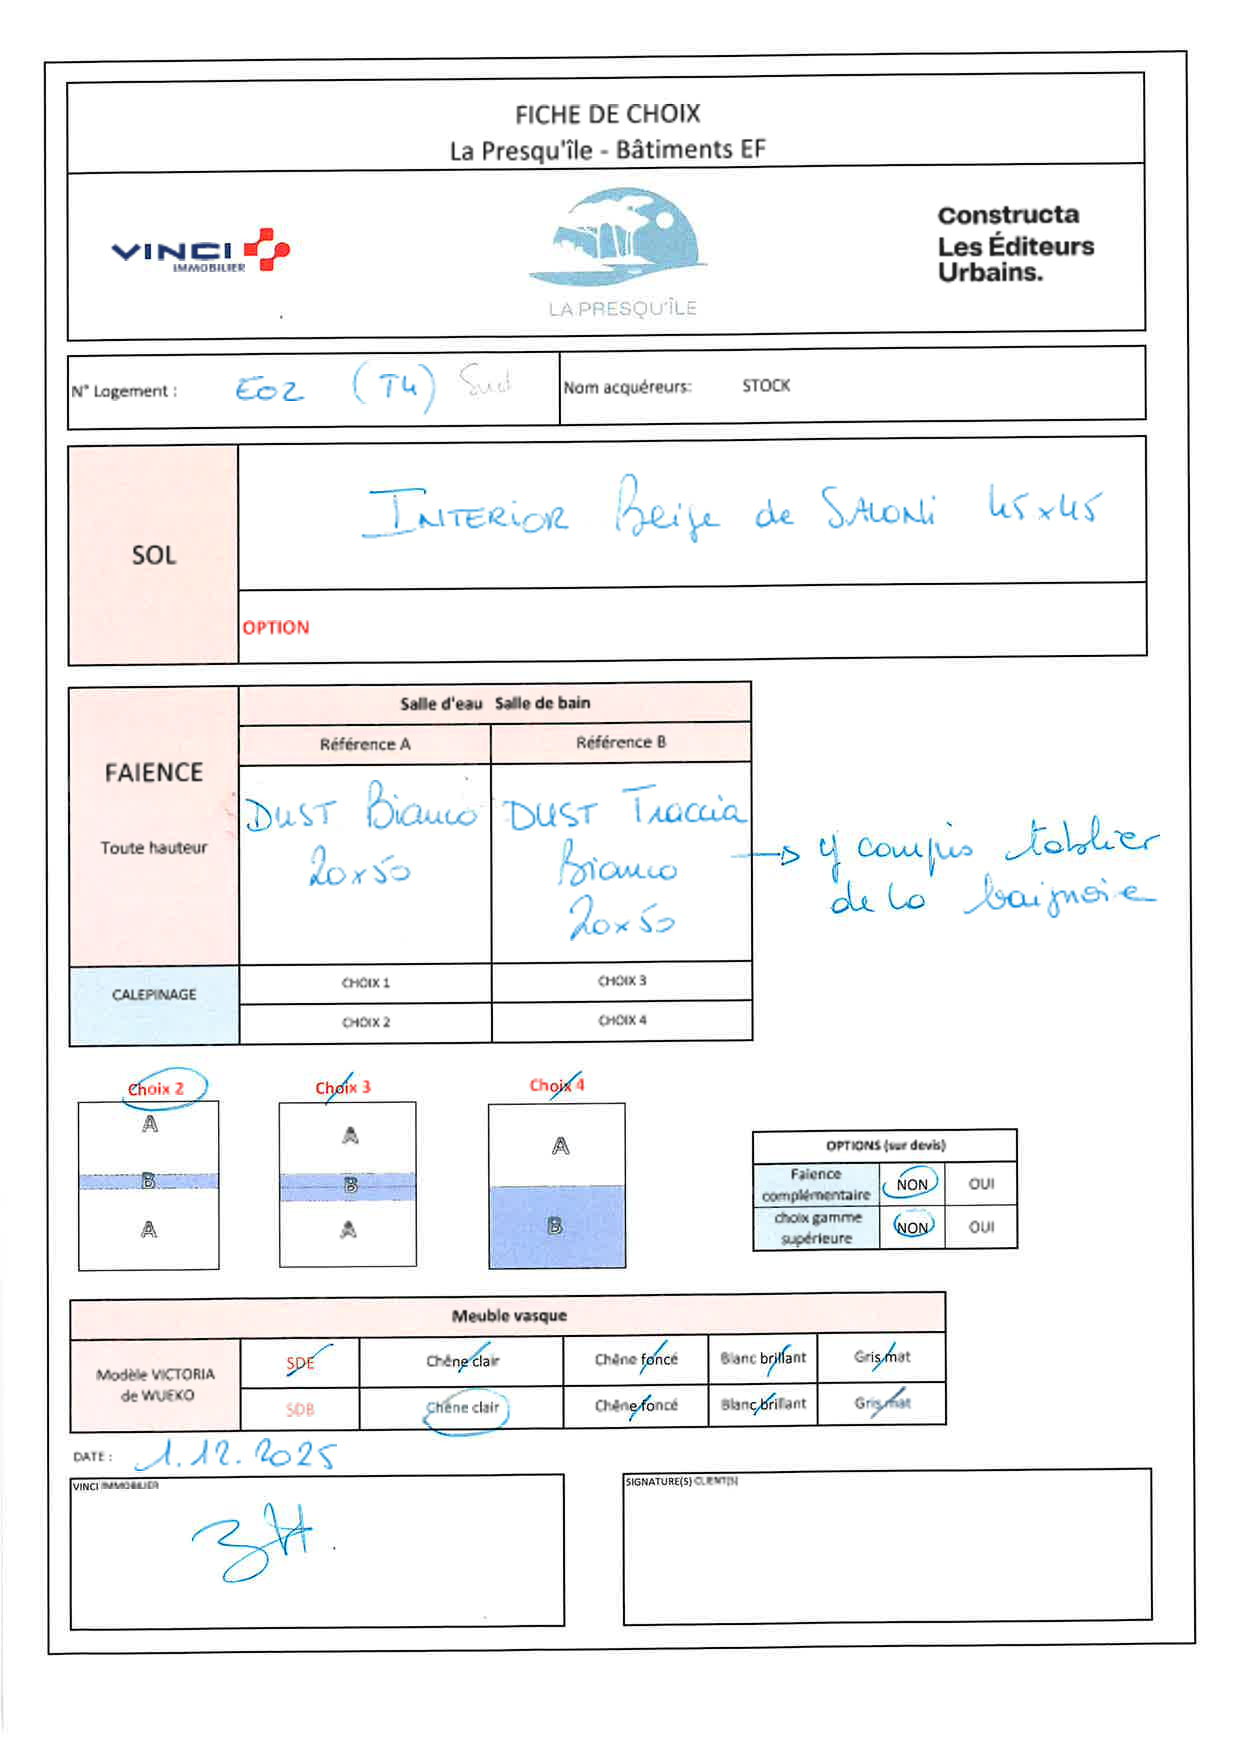 FICHE DE CHOIX
La Presqu'île - Bâtiments EF
VINCI
IMMOBILIER
LA PRESQU'ÎLE
Constructa
Les Éditeurs
Urbains.
N° Logement : E02 (T4) Sud
Nom acquéreurs: STOCK
SOL
INTERIOR Beige de SALONI 45x45
OPTION
FAIENCE
Toute hauteur
Salle d'eau Salle de bain
Référence A
Référence B
DUST Bianco
20x50
DUST Traccia
Bianco
20x50
→ y compris tablier
de la baignoire
CALEPINAGE
CHOIX 1
CHOIX 3
CHOIX 2
CHOIX 4
Choix 2
Choix 3
Choix 4
A
B
A
A
B
A
A
B
OPTIONS (sur devis)
Faïence
complémentaire
NON
OUI
choix gamme
supérieure
NON
OUI
Meuble vasque
Modèle VICTORIA
de WUEKO
SDE
Chêne clair
Chêne foncé
Blanc brillant
Gris mat
SDB
Chêne clair
Chêne foncé
Blanc brillant
Gris mat
DATE : 1.12.2025
VINCI IMMOBILIER
SIGNATURE(S) CLIENT(S)